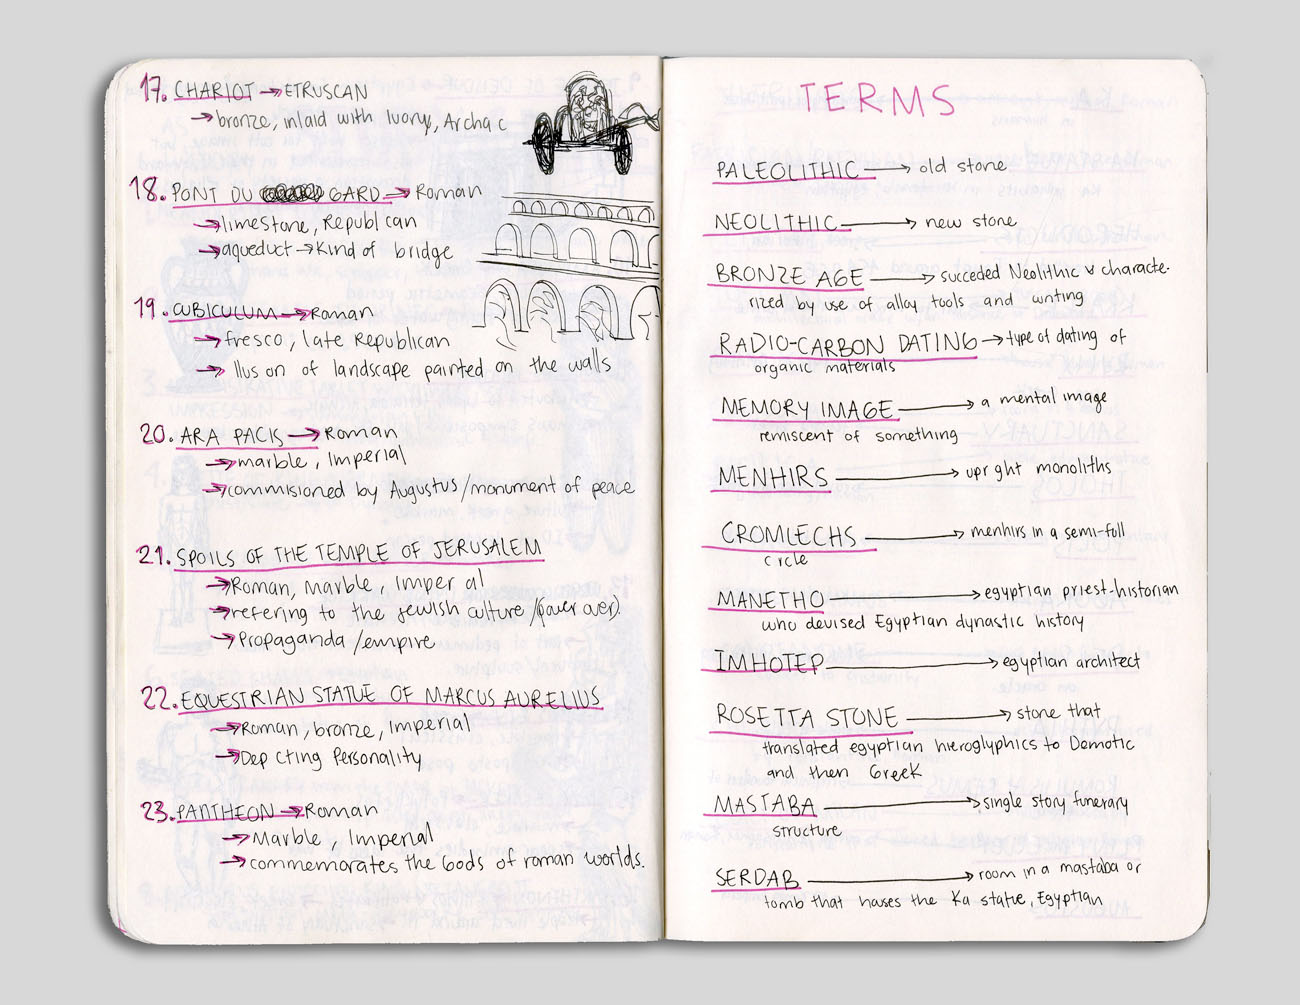 17. CHARIOT → ETRUSCAN
→ bronze, inlaid with Ivory, Archa c
18. PONT DU GARD → Roman
→ limestone, Republican
→ aqueduct → Kind of bridge
19. CUBICULUM → Roman
→ fresco, late Republican
→ Ilus on of landscape painted on the walls
20. ARA PACIS → Roman
→ marble, Imperial
→ commisioned by Augustus/monument of peace
21. SPOILS OF THE TEMPLE OF JERUSALEM
→ Roman, Marble, Imper al
→ refering to the jewish culture/(power over).
→ Propaganda/empire
22. EQUESTRIAN STATUE OF MARCUS AURELIUS
→ Roman, bronze, Imperial
→ Dep cting Personality
23. PANTHEON → Roman
→ Marble, Imperial
→ commemorates the Gods of roman worlds.
TERMS
PALEOLITHIC → old stone
NEOLITHIC → new stone
BRONZE AGE → succeded Neolithic & characte-
rized by use of alloy tools and writing
RADIO-CARBON DATING → type of dating of
organic materials
MEMORY IMAGE → a mental image
remiscent of something
MENHIRS → upr ght monoliths
CROMLECHS → menhirs in a semi-full
circle
MANETHO → egyptian priest-historian
who devised Egyptian dynastic history
IMHOTEP → egyptian architect
ROSETTA STONE → stone that
translated egyptian hieroglyphics to Demotic
and then Greek
MASTABA → single story funerary
structure
SERDAB → room in a mastaba or
tomb that houses the Ka statue, Egyptian